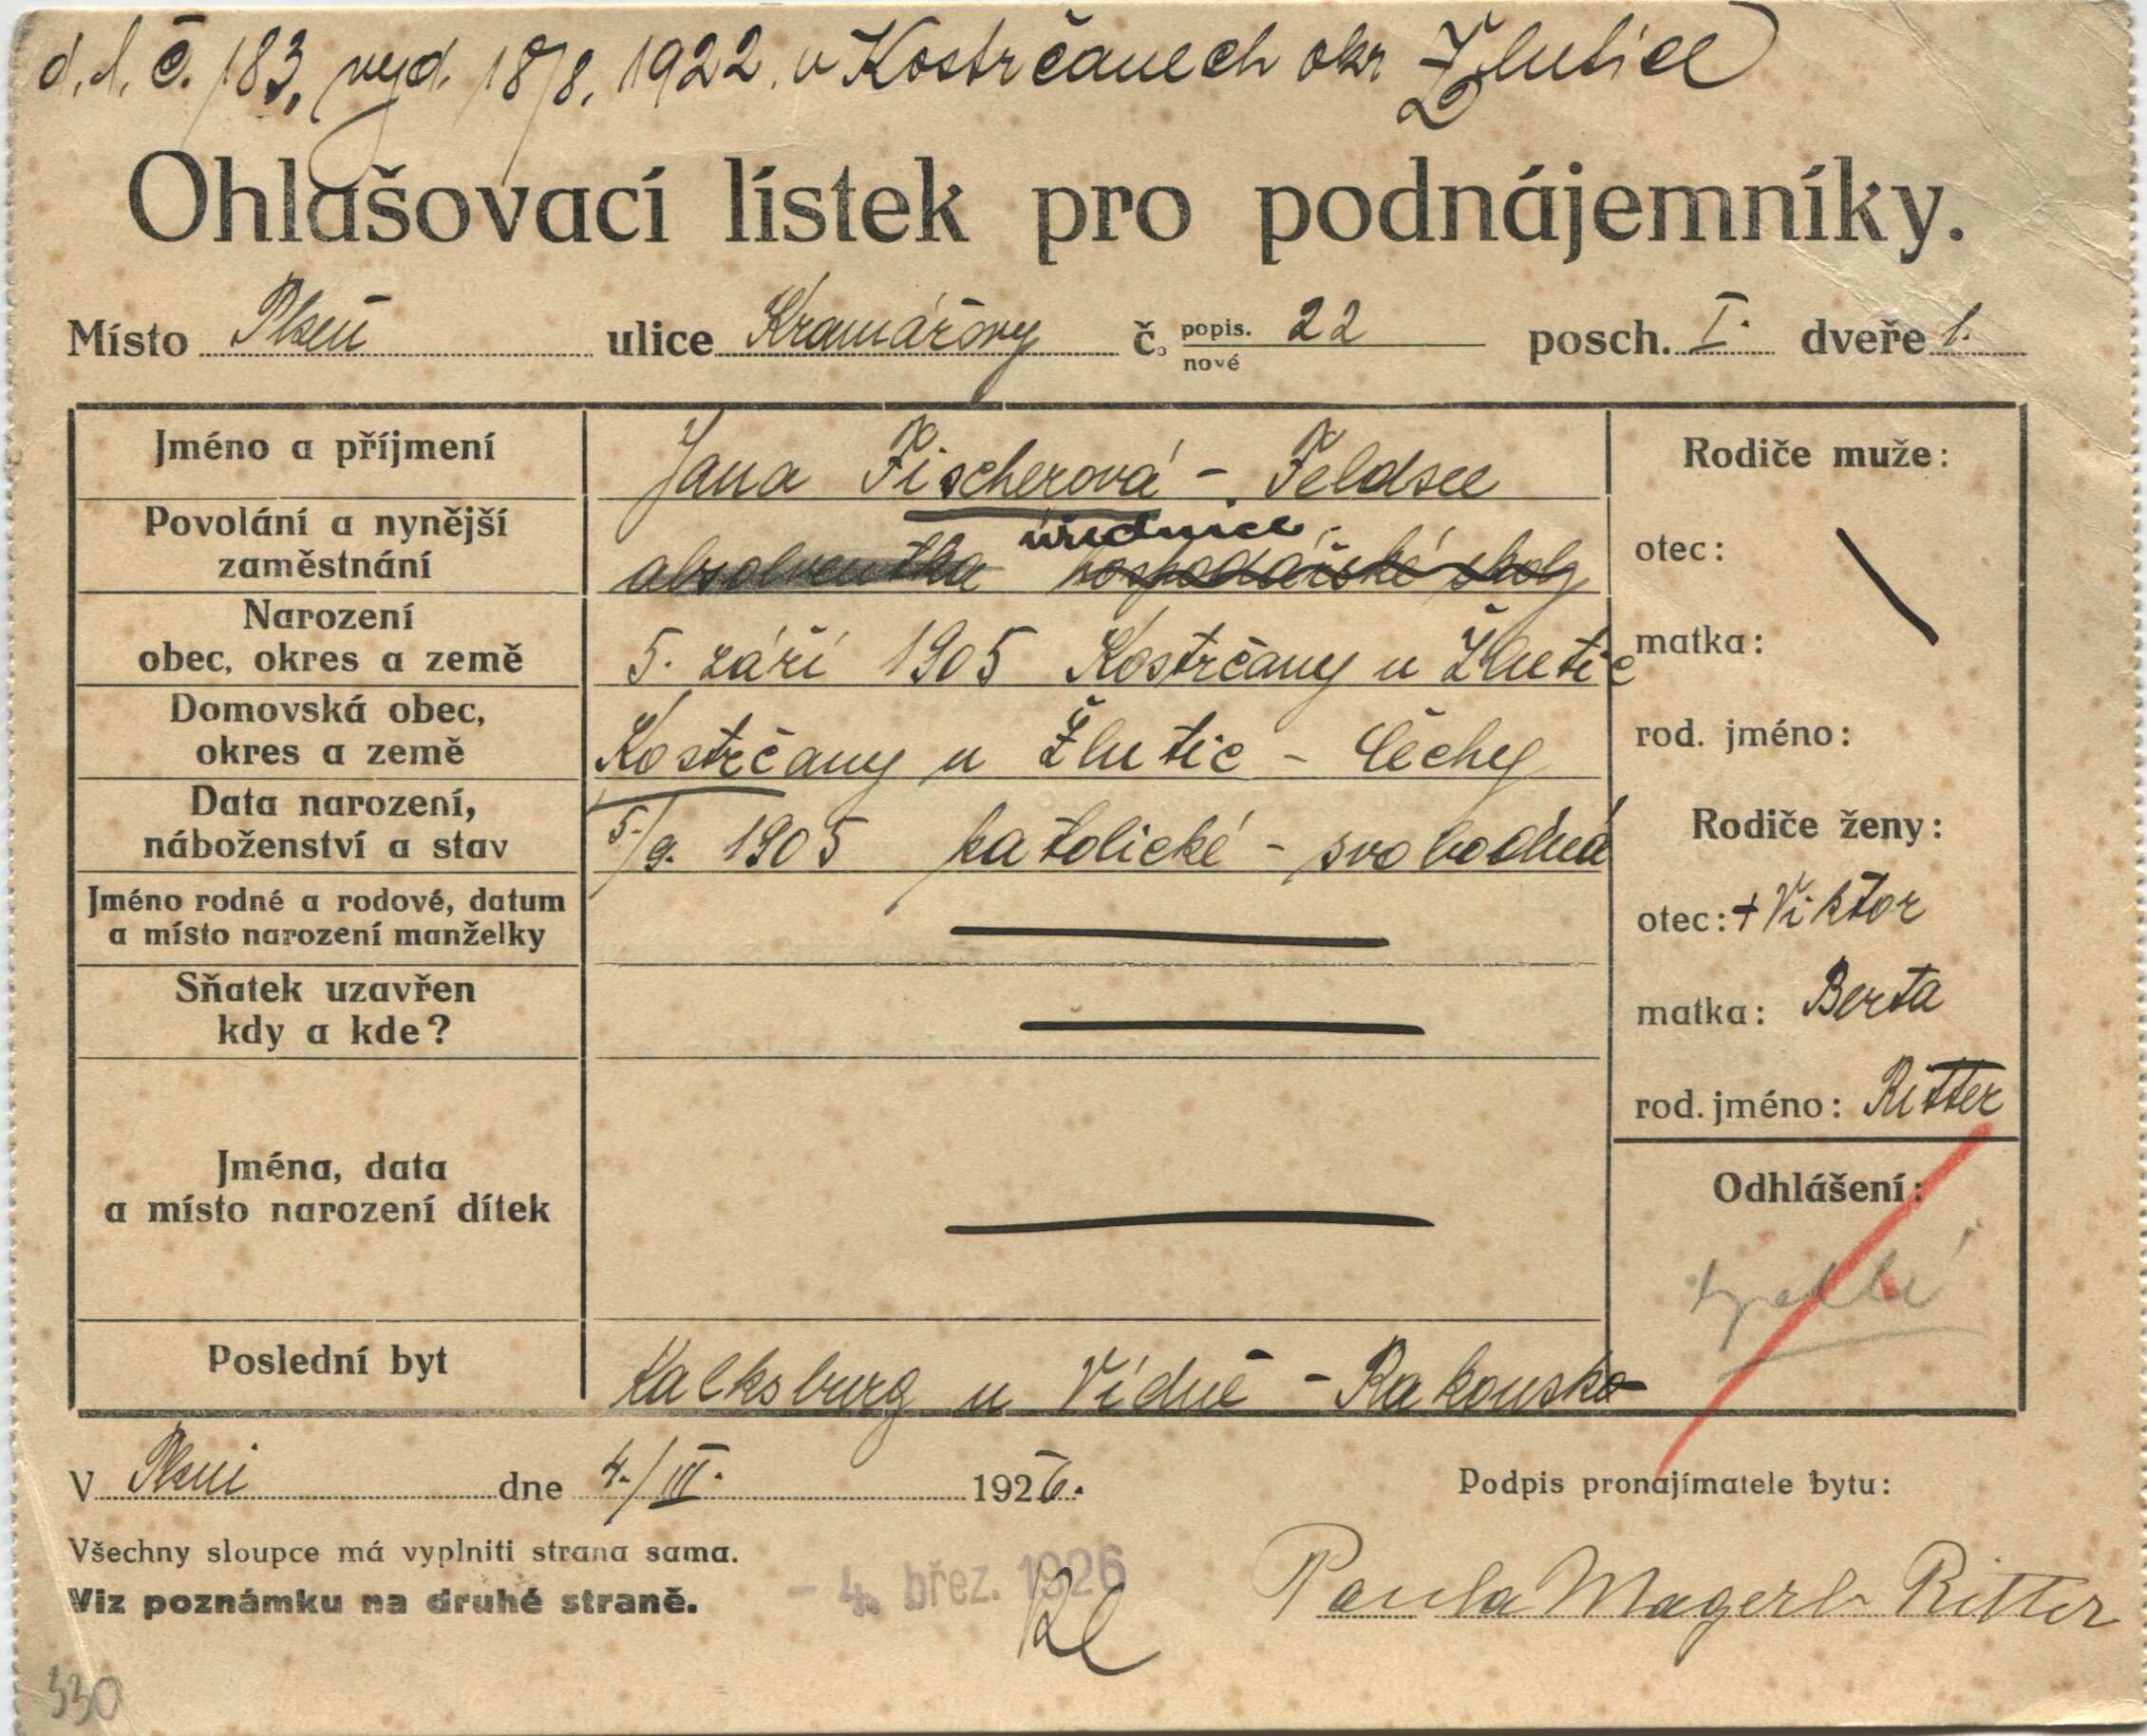 d. l. č. 183, vyd. 18/8. 1922. v Kostrčanech okr Žlutice
Ohlašovací lístek pro podnájemníky.
Místo Plzeň ulice Kramářovy č. popis. nové 22 posch. I. dveře 1.
Jméno a příjmení Jana Fischerová - Feldsee
Povolání a nynější zaměstnání absolventka hospodářské školy úřednice
Narození obec, okres a země 5. září 1905 Kostrčany u Žlutic
Domovská obec, okres a země Kostrčany u Žlutic - Čechy
Data narození, náboženství a stav 5./9. 1905 katolické - svobodná
Jméno rodné a rodové, datum a místo narození manželky
Sňatek uzavřen kdy a kde?
Jména, data a místo narození dítek
Poslední byt Kalksburg u Vídně - Rakousko
Rodiče muže:
otec:
matka:
rod. jméno:
Rodiče ženy:
otec: + Viktor
matka: Berta
rod. jméno: Ritter
Odhlášení:
V Plzni dne 4./III. 1926.
Podpis pronajímatele bytu:
Všechny sloupce má vyplniti strana sama.
Viz poznámku na druhé straně.
- 4. břez. 1926
Paula Magerl-Ritter
330